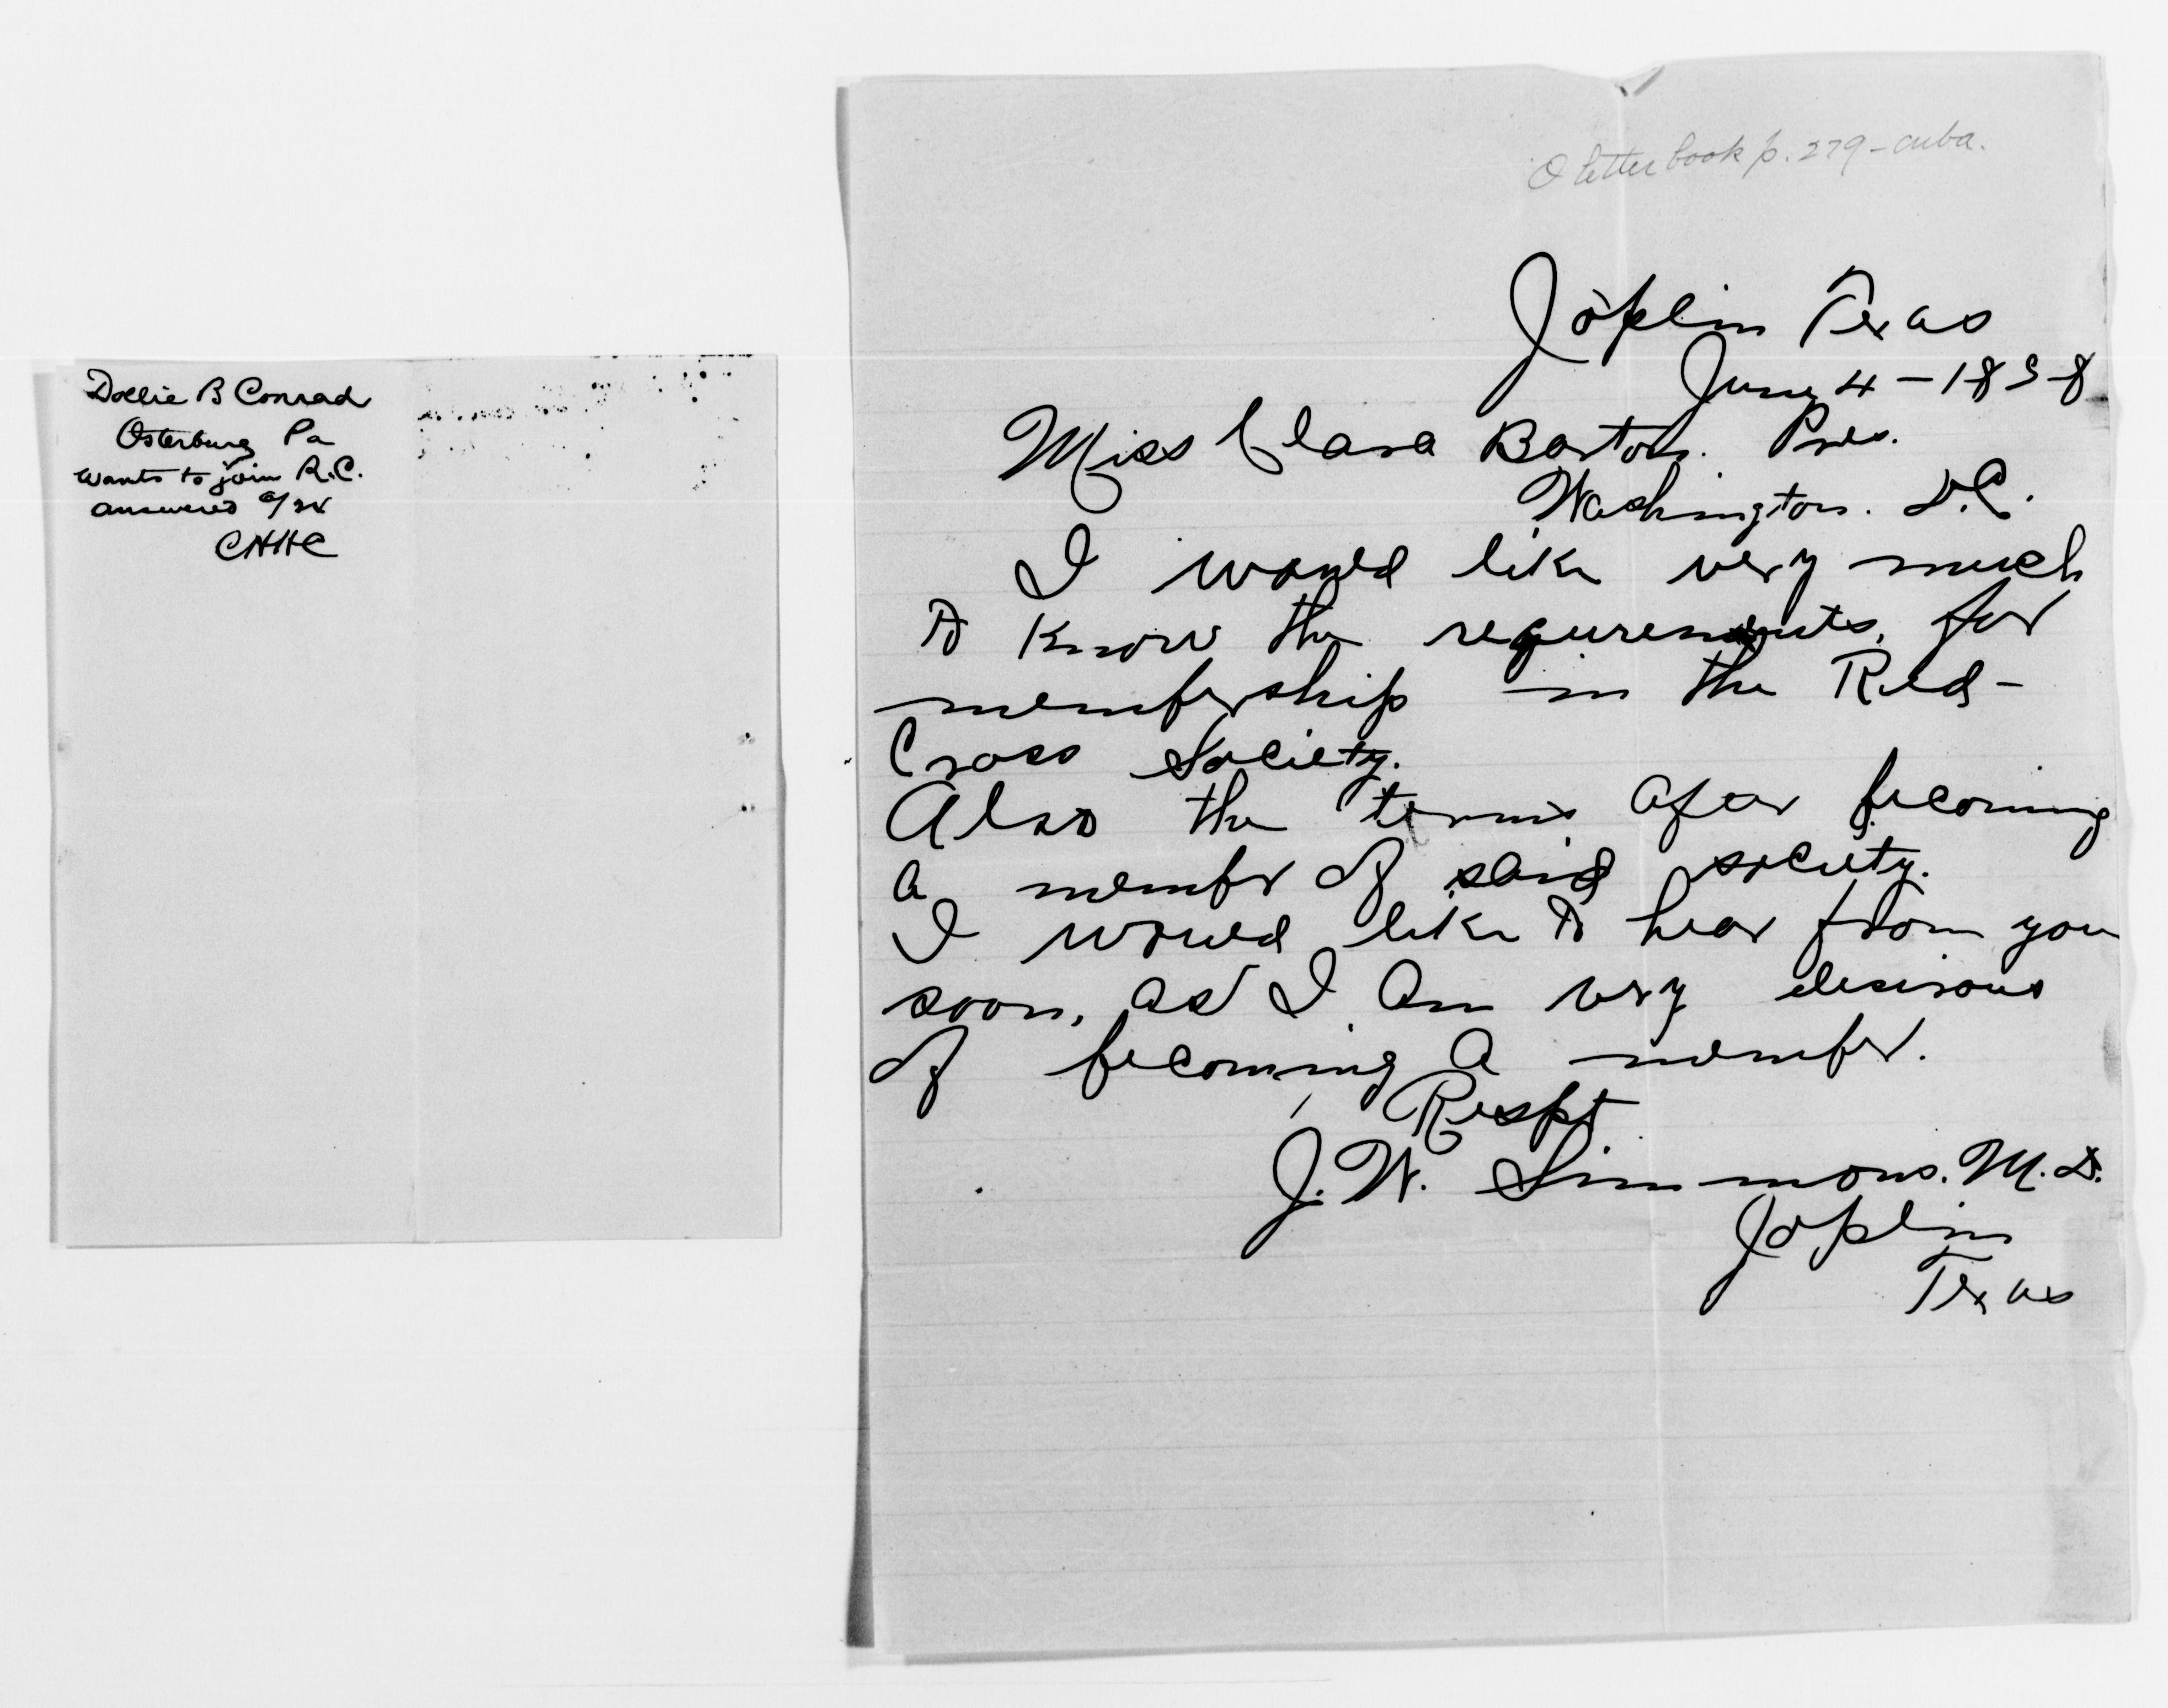 Dollie B Conrad
Osterburg Pa
wants to join R.C.
answered 6/24
CHHC
letter book p. 279 - Cuba.
Joplin Texas
June 4 - 1898
Miss Clara Barton. Pres.
Washington. D.C.
I would like very much
to know the requrements, for
membership in the Red-
Cross Society.
Also the terms after becoming
a member of said society.
I would like to hear from you
soon, as I am very desirous
of becoming a member.
Respt
J. W. Simmons. M.D.
Joplin
Texas